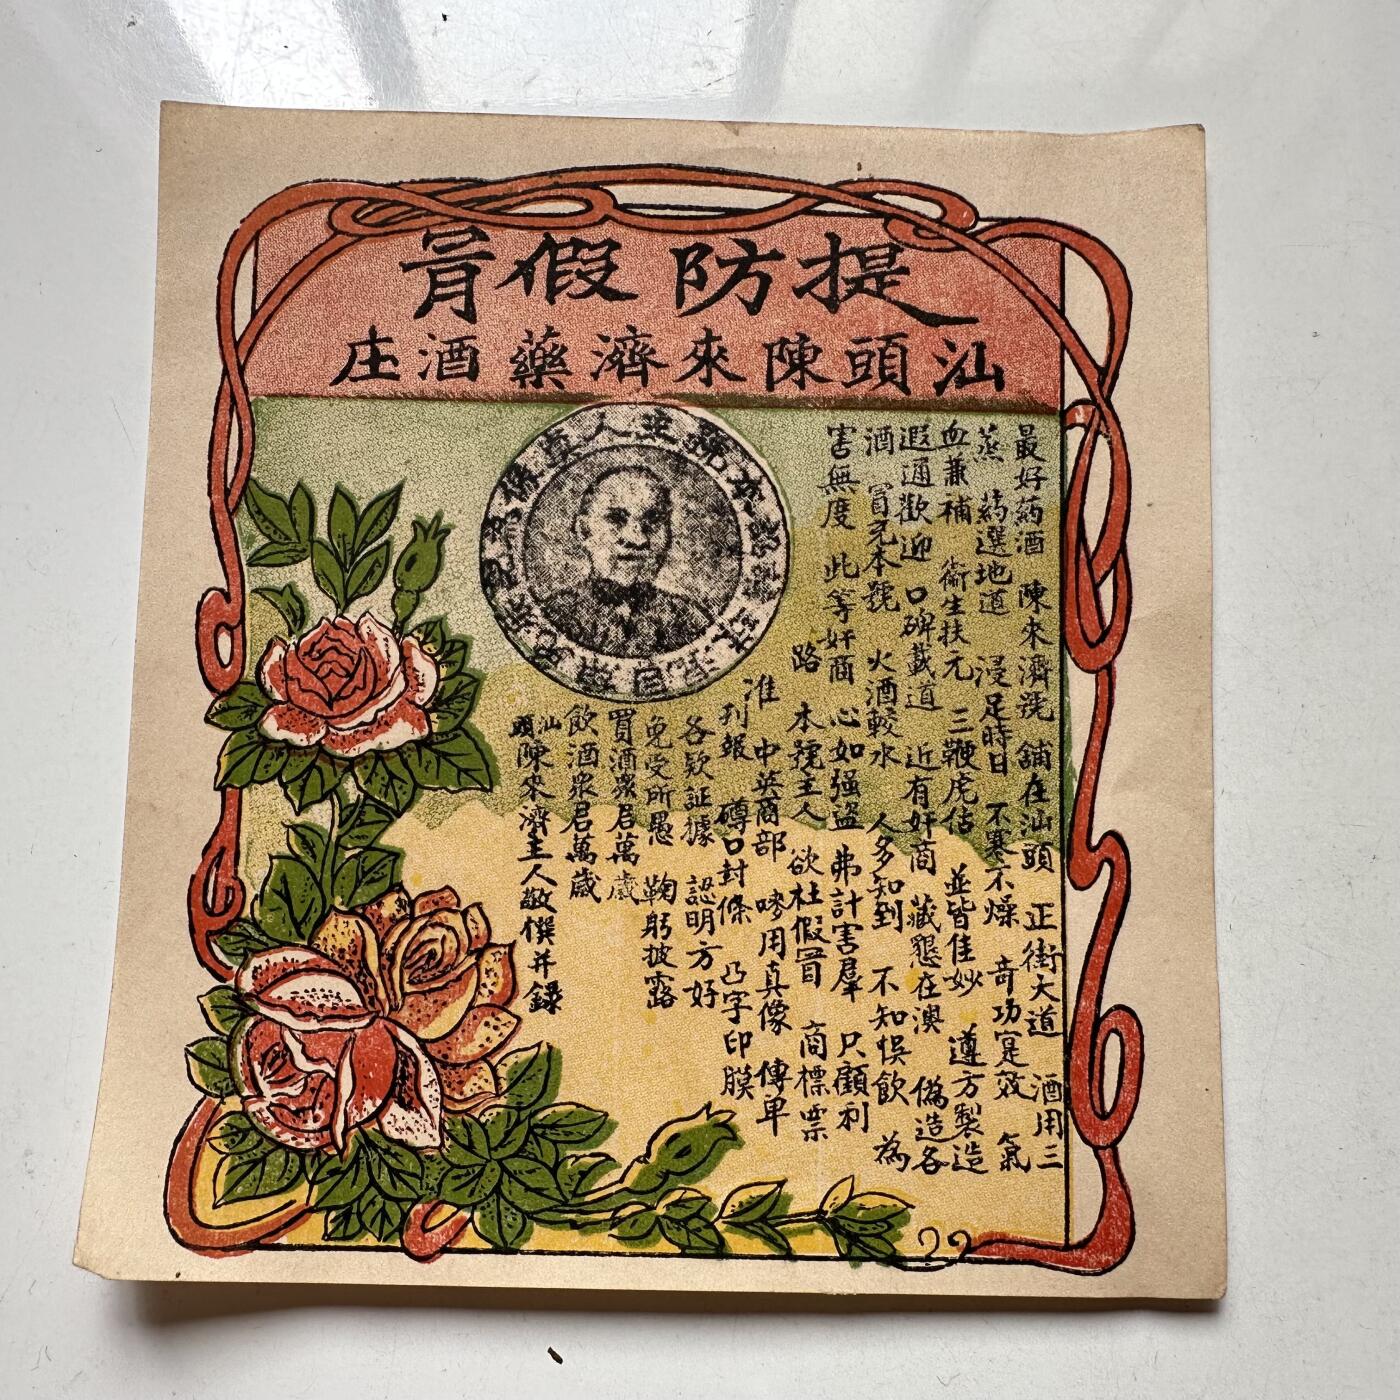 提防假冒
汕頭陳來濟藥酒庄
本號主人真像為記
最好药酒 陳來濟號 舖在汕頭 正街大道 酒用三
蒸 药選地道 浸足時日 不寒不燥 奇功寔效 氣
血兼補 衛生扶元 三鞭虎估 並皆佳妙 遵方製造
遐通歡迎 口碑載道 近有奸商 藏懇在澳 偽造各
酒 冒充本號 火酒較水 人多知到 不知悞飲 為
害無度 此等奸商 心如强盜 弗計害羣 只顧利
路 本號主人 欲杜假冒 商標票
准 中英商部 嘜用真像 傳单
刊報 磚口封條 凸字印膜
各欵証據 認明方好
免受所愚 鞠躬披露
買酒眾君萬歲
飲酒眾君萬歲
汕頭陳來濟主人敬僎并録
22